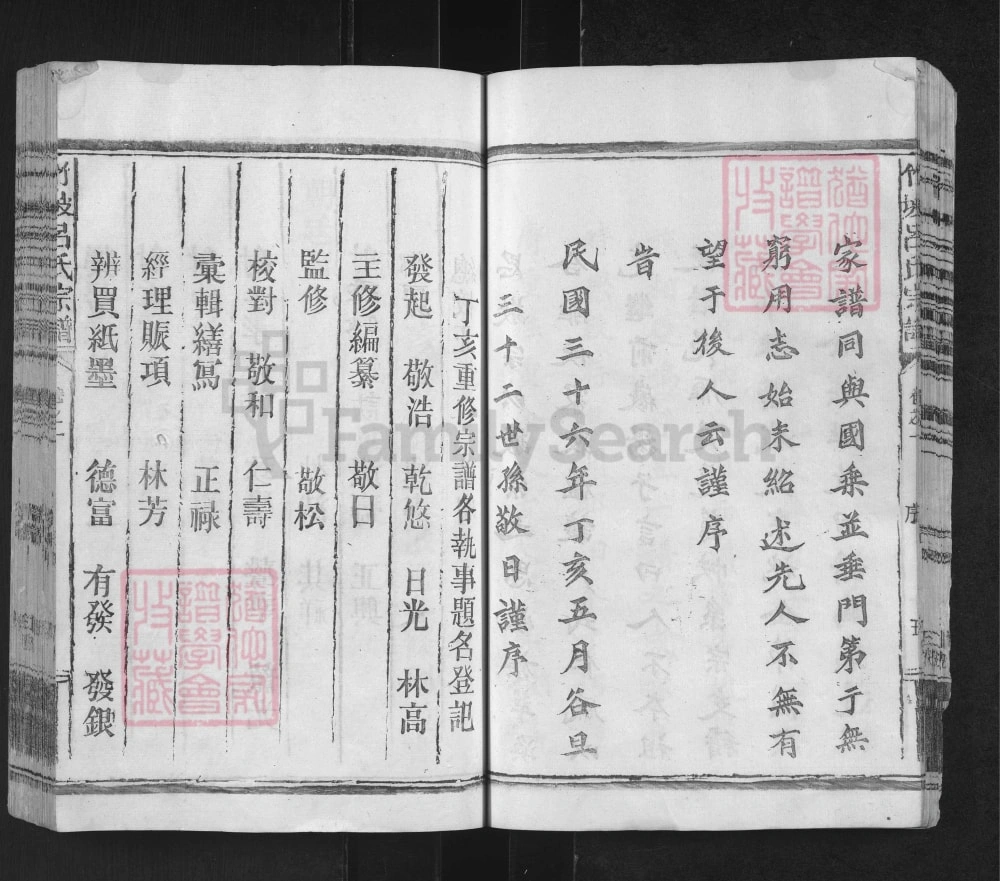 家譜同與國乗並垂門第于無
窮用志始末紹述先人不無有
望于後人云謹序
旹
民國三十六年丁亥五月谷旦
三十二世孫敬日謹序
竹坡呂氏宗譜 卷之一 序 五
丁亥重修宗譜各執事題名登記
發起 敬浩 乾悠 日光 林高
主修編纂 敬日
監修 敬松
校對 敬和 仁壽
彙輯繕寫 正祿
經理賬項 林芳
辨買紙墨 德富 有發 發銀
竹坡呂氏宗譜
FamilySearch